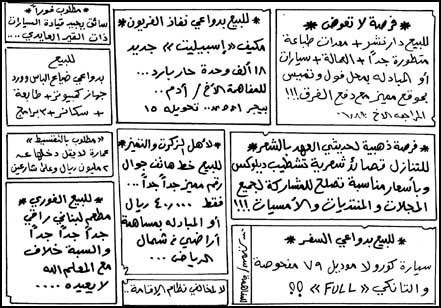 * فرصة لا تعوض *
للبيع دار نشر + معدات طباعة
متطورة جداً + العمالة + سيارات
أو المبادلة بمحل فول وتميس
بموقع مميز مع دفع الفرق!!!
للمراجعة الأخ /
للبيع بدواعي نفاذ الفريون
مكيف «إسبيليت» جديد
١٨ ألف وحدة حار بارد..
للمفاهمة الأخ / آدم ..
بيجر تحويله ١٥
* مطلوب فوراً *
سائق يجيد قيادة السيارات
ذات القير العايدي...
للبيع
بدواعي ضياع الباس وورد
جهاز كمبيوتر + طابعة
+ سكانر + ٣ برامج
* فرصة ذهبية لحديثي العهد بالشعر *
للتنازل قصائد شعرية تشطيب ديلوكس
وبأسعار مناسبة تصلح للمشاركة لجميع
المجلات والمنتديات والأمسيات !!!
لأهل الذوق والتميز
للبيع خط هاتف جوال
رقم مميز جداً جداً..
فقط ٤٠,٠٠٠ ريال
أو المبادلة بمساهمة
أراضي في شمال
الرياض..
«مطلوب بالتقسيط»
عمارة لا يقل دخلها عن
٢ مليون ريال وعلى شارعين
* للبيع الفوري *
مطعم لبناني راقي
جداً جداً جداً
والسبة خلاف
مع المعلم الله
لا يعيده ....
* للبيع بدواعي السفر *
سيارة كورولا موديل ٧٩ مفحوصة
والتانكي «FULL» ؟؟
لا مخالفي نظام الإقامة..